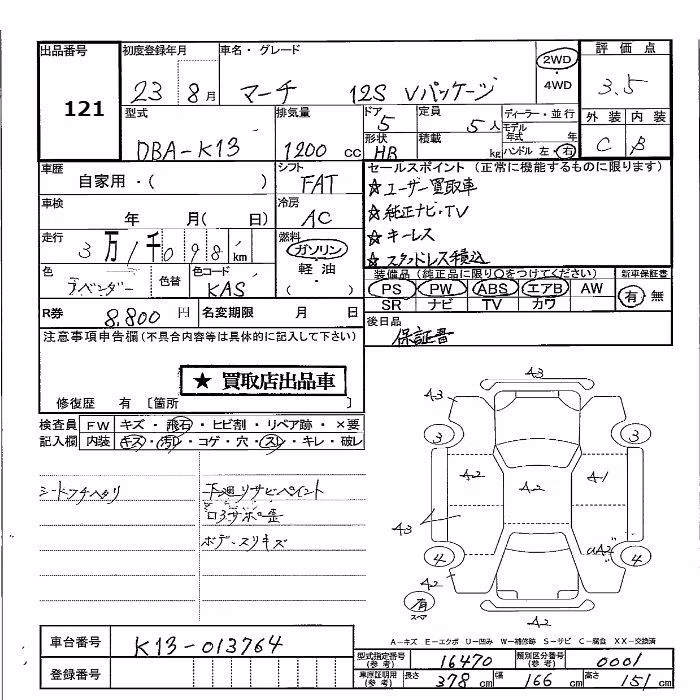 出品番号 初度登録年月 車名・グレード 評価点
121 23 8月 マーチ 12S Vパッケージ 2WD・4WD 3.5
型式 排気量 ドア 定員 ディーラー・並行 外装 内装
DBA-K13 1200cc 5 5人 モデル年式 年 C B
形状 HB 積載 kg ハンドル 左・右
車歴 シフト セールスポイント (正常に機能するものに限ります)
自家用・( ) FAT ☆ユーザー買取車
車検 冷房 ☆純正ナビ・TV
年 月( 日) AC ☆キーレス
走行 燃料 ☆スタッドレス積込
3万1千098km ガソリン・軽油・( )
装備品(純正品に限り○をつけてください) 新車保証書
色 色替 色コード PS PW ABS エアB AW 有・無
ラベンダー KAS SR ナビ TV カワ
R券 8,800円 名変期限 月 日 後日品
保証書
注意事項申告欄(不具合内容等は具体的に記入して下さい)
★ 買取店出品車
修復歴 有 〔箇所 〕
検査員 FW キズ・飛石・ヒビ割・リペア跡・×要
記入欄 内装 キズ・汚れ・コゲ・穴・スレ・キレ・破レ
下廻リサビペイント
ボデースリキズ
A3
A3
3 3
A2 A2 A1
A3
4 UA2 4
A2
有
スペア
A2
A-キズ E-エクボ U-凹み W-補修跡 S-サビ C-腐食 XX-交換済
車台番号 K13-013764
登録番号
型式指定番号(参考) 16470 類別区分番号(参考) 0001
車庫証明用(参考) 長さ 378cm 幅 166cm 高さ 151cm